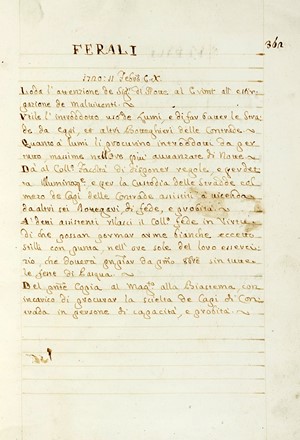 FERALI
362
1720: 11 Febb. C.X.
Loda l'attenzione de Sigri di Nove al Crimt. all' estir-
gazione de malviventi.
Utile l'introddotto uso de Lumi, e di far batter le Stra-
de da Capi, et altri Bottegheri delle Contrade
Quanto a lumi li procurino introddotti da per
tutto, massime nell' ore più avvanzate di Notte
Dà al Collo facoltà di disponer regole, e per det-
ta Illuminaze e per la Custodia delle Strade col
mezo de Capi delle Contrade assistiti a vicenda
da altri sei Botteghri di fede, e probità.
A' detti assistenti rilasci il Collo fede in virtù
di che possan portar arme bianche eccetto
stilli con punta nell' ore sole del loro esserci-
zio, che doverà pigliar da pmo 8bre sin tutte
le feste di Pasqua.
Del pnte Copia al Mago alla Biastema, con
incarico di procurar la scielta de Capi di Con-
trada in persone di capacità, e probità.